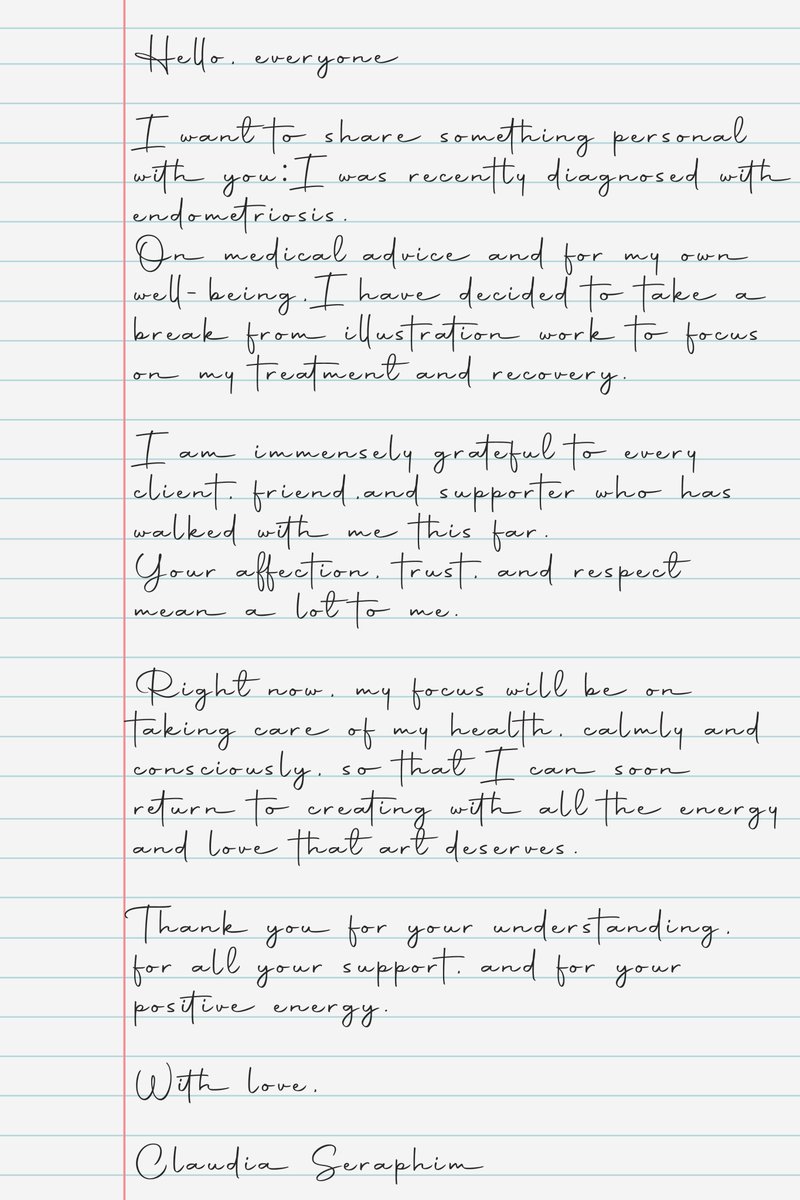 Hello, everyone
I want to share something personal
with you: I was recently diagnosed with
endometriosis.
On medical advice and for my own
well-being, I have decided to take a
break from illustration work to focus
on my treatment and recovery.
I am immensely grateful to every
client, friend, and supporter who has
walked with me this far.
Your affection, trust, and respect
mean a lot to me.
Right now, my focus will be on
taking care of my health, calmly and
consciously, so that I can soon
return to creating with all the energy
and love that art deserves.
Thank you for your understanding,
for all your support, and for your
positive energy.
With love,
Claudia Seraphim